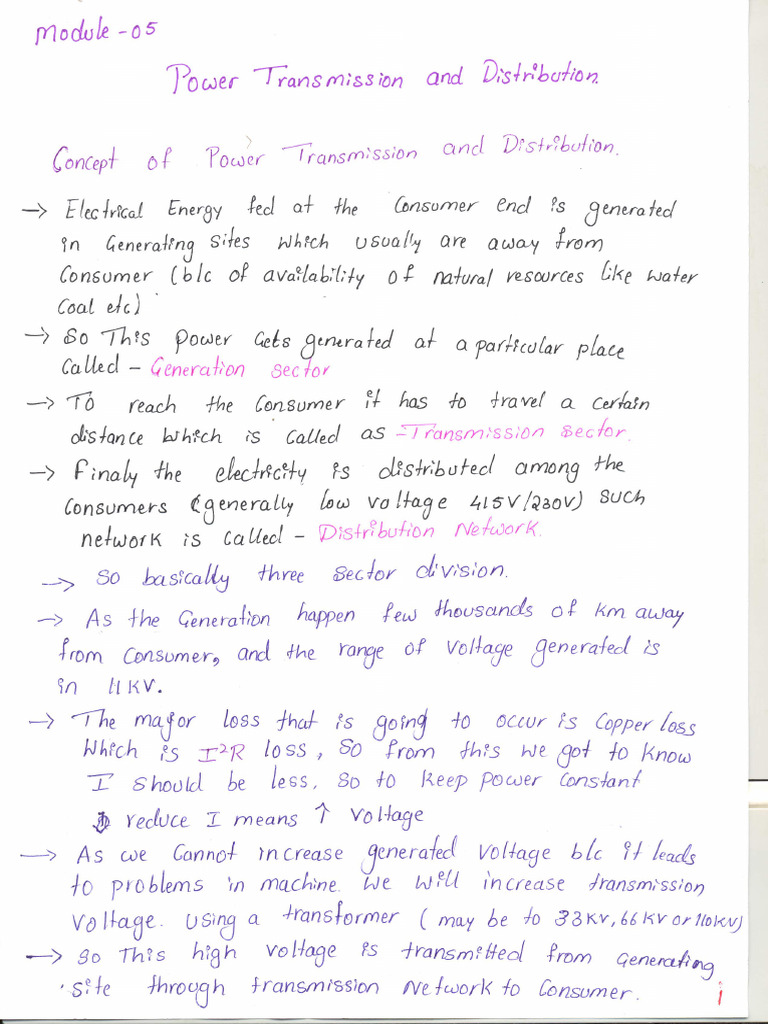 Module-05
Power Transmission and Distribution.
Concept of Power Transmission and Distribution.
→ Electrical Energy fed at the Consumer end is generated
in Generating sites which usually are away from
Consumer (b/c of availability of natural resources like water
Coal etc)
→ So This power Gets generated at a particular place
Called - Generation sector
→ To reach the Consumer it has to travel a certain
distance which is called as - Transmission sector.
→ Finaly the electricity is distributed among the
Consumers (generally low voltage 415V/230V) such
network is Called - Distribution Network.
→ So basically three sector division.
→ As the Generation happen few thousands of km away
from Consumer, and the range of voltage generated is
in 11KV.
→ The major loss that is going to occur is Copper loss
Which is I²R loss, So from this we got to know
I should be less, So to keep power Constant
reduce I means ↑ voltage
→ As we Cannot increase generated voltage b/c it leads
to problems in machine. We will increase transmission
voltage. Using a transformer ( may be to 33KV, 66KV or 110KV)
→ So This high voltage is transmitted from Generating
site through transmission Network to Consumer.
1